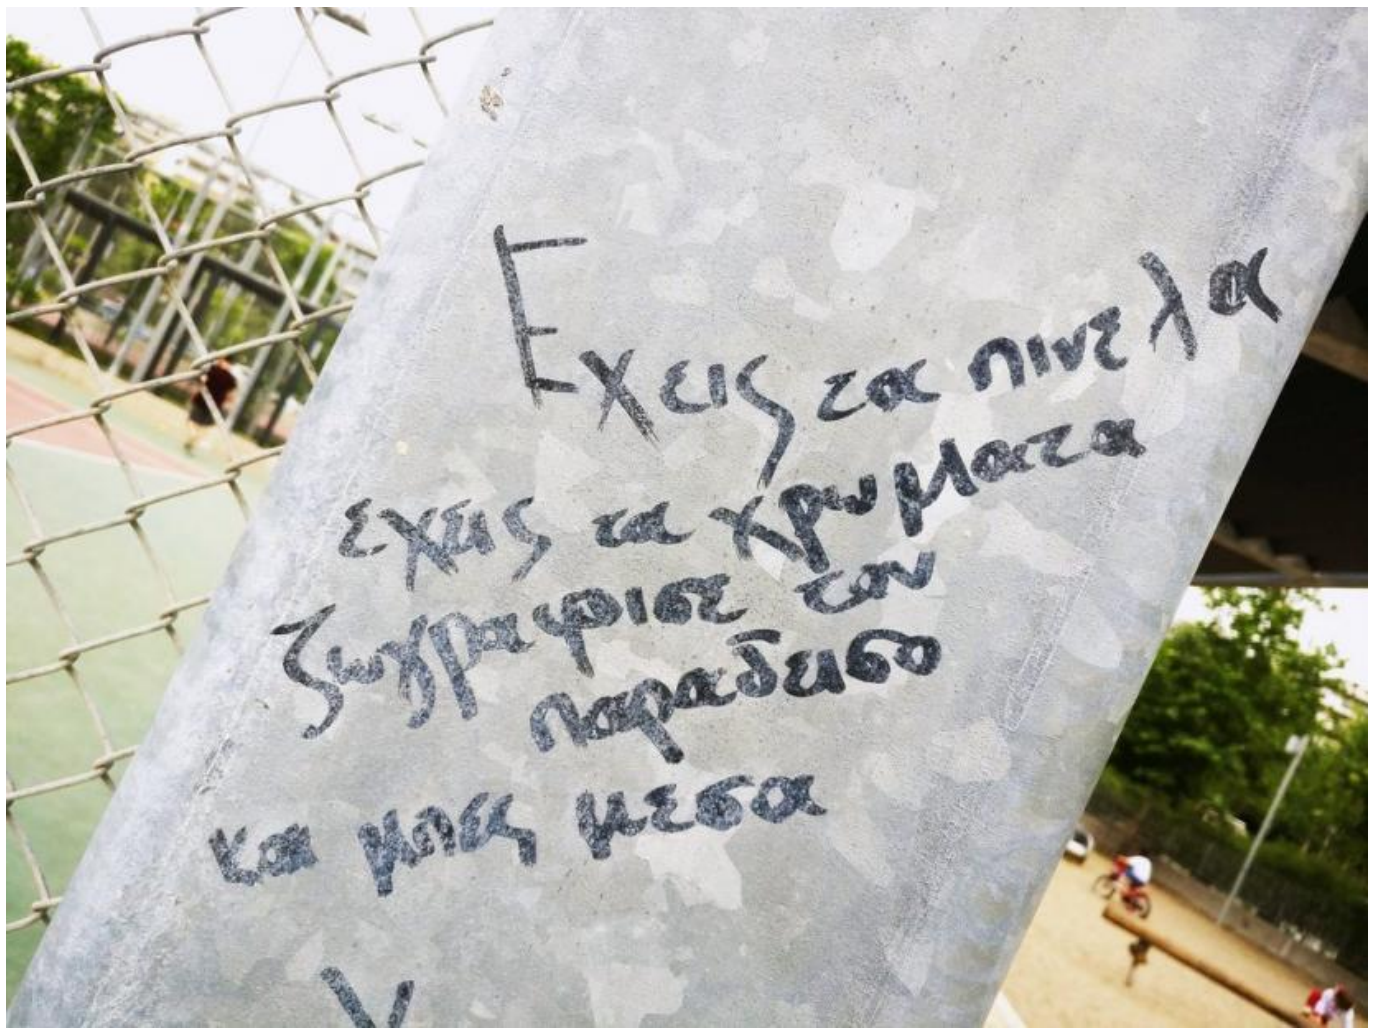 Εχεις τα πινελα
εχεις τα χρωματα
ζωγραφισε τον
παραδεισο
και μπες μεσα